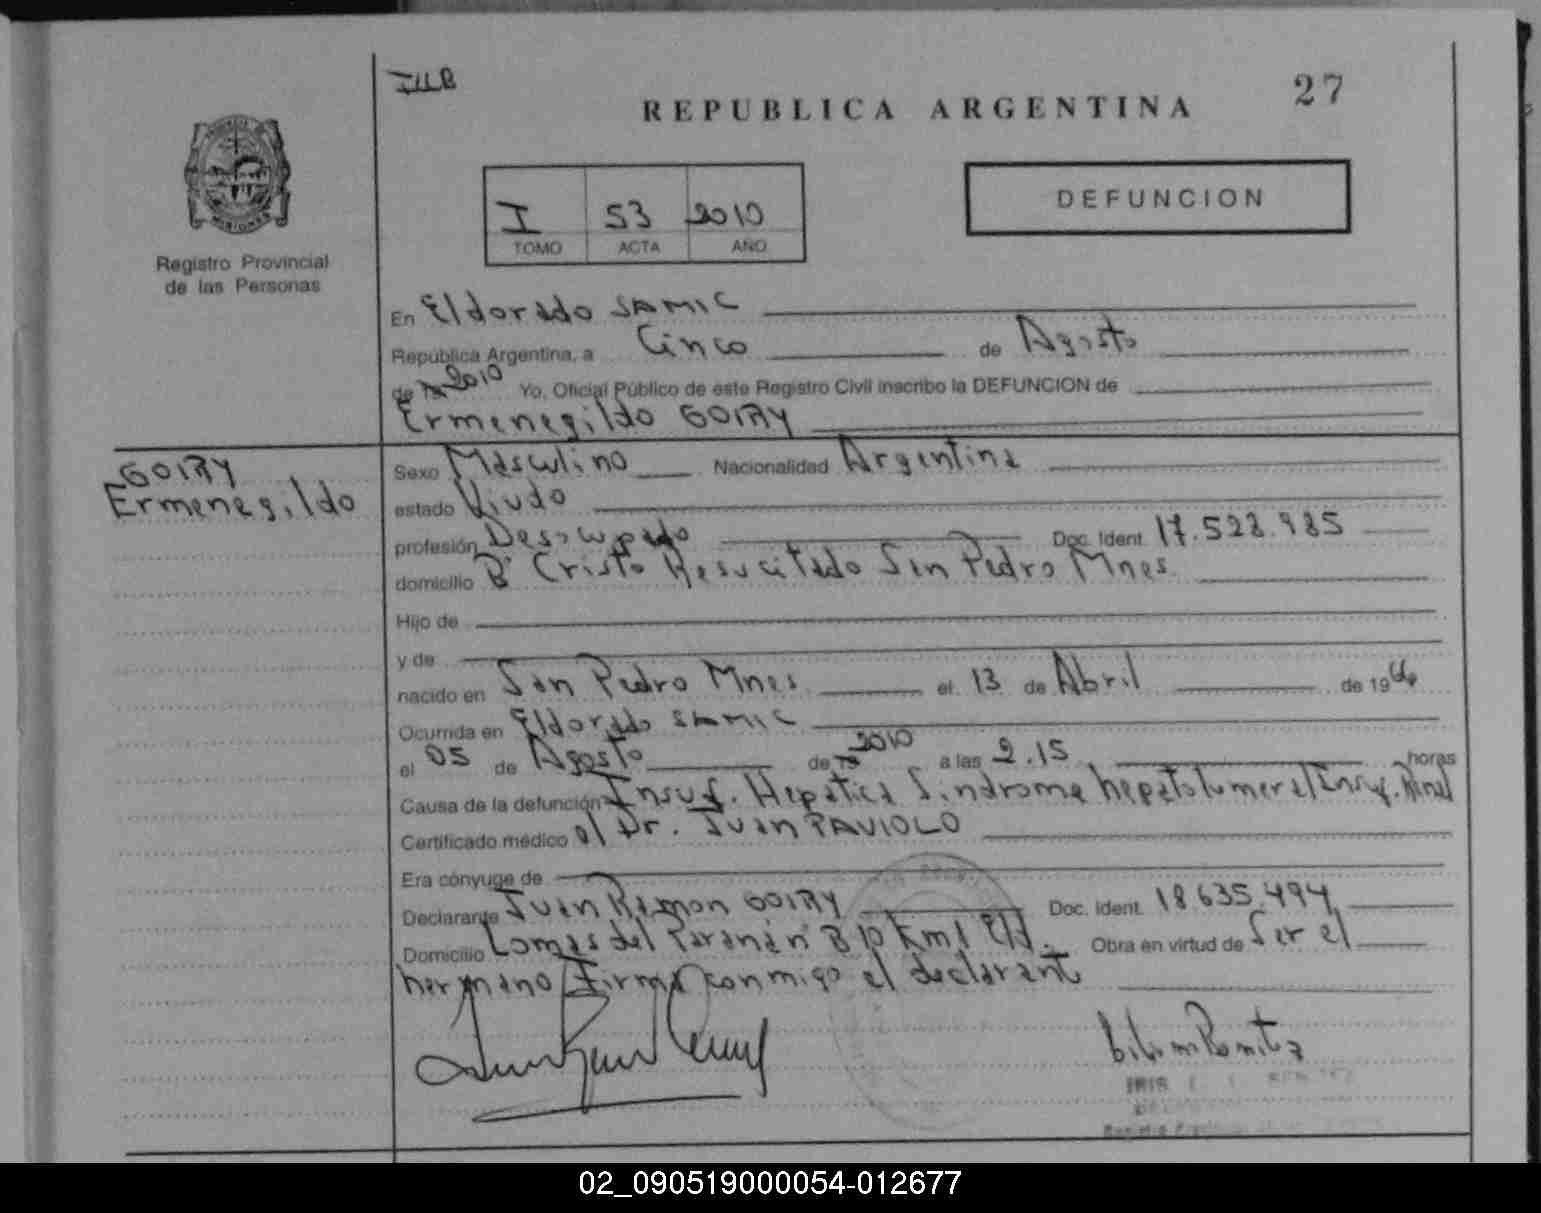 ILLB
REPUBLICA ARGENTINA
27
I 53 2010
TOMO ACTA AÑO
DEFUNCION
MISIONES
Registro Provincial
de las Personas
En Eldorado SAMIC
Republica Argentina, a Cinco de Agosto
de 2010 Yo, Oficial Público de este Registro Civil inscribo la DEFUNCION de
Ermenegildo GOIRY
GOIRY
Ermenegildo
Sexo Masculino Nacionalidad Argentina
estado Viudo
profesión Desocupado Doc. Ident. 17.523.985
domicilio Bº Cristo Resucitado San Pedro Mnes.
Hijo de
y de
nacido en San Pedro Mnes el 13 de Abril de 1964
Ocurrida en Eldorado SAMIC
el 05 de Agosto de 2010 a las 2.15 horas
Causa de la defunción Insuf. Hepatica Sindrome Insuf. Renal
Certificado médico el Dr. Juan PAVIOLO
Era cónyuge de
Declarante Juan Ramon GOIRY Doc. Ident. 18.635.494
Domicilio Lomas del Paranán B 10 Km 1 Eld. Obra en virtud de Ser el
hermano Firma conmigo el declarante
02_090519000054-012677